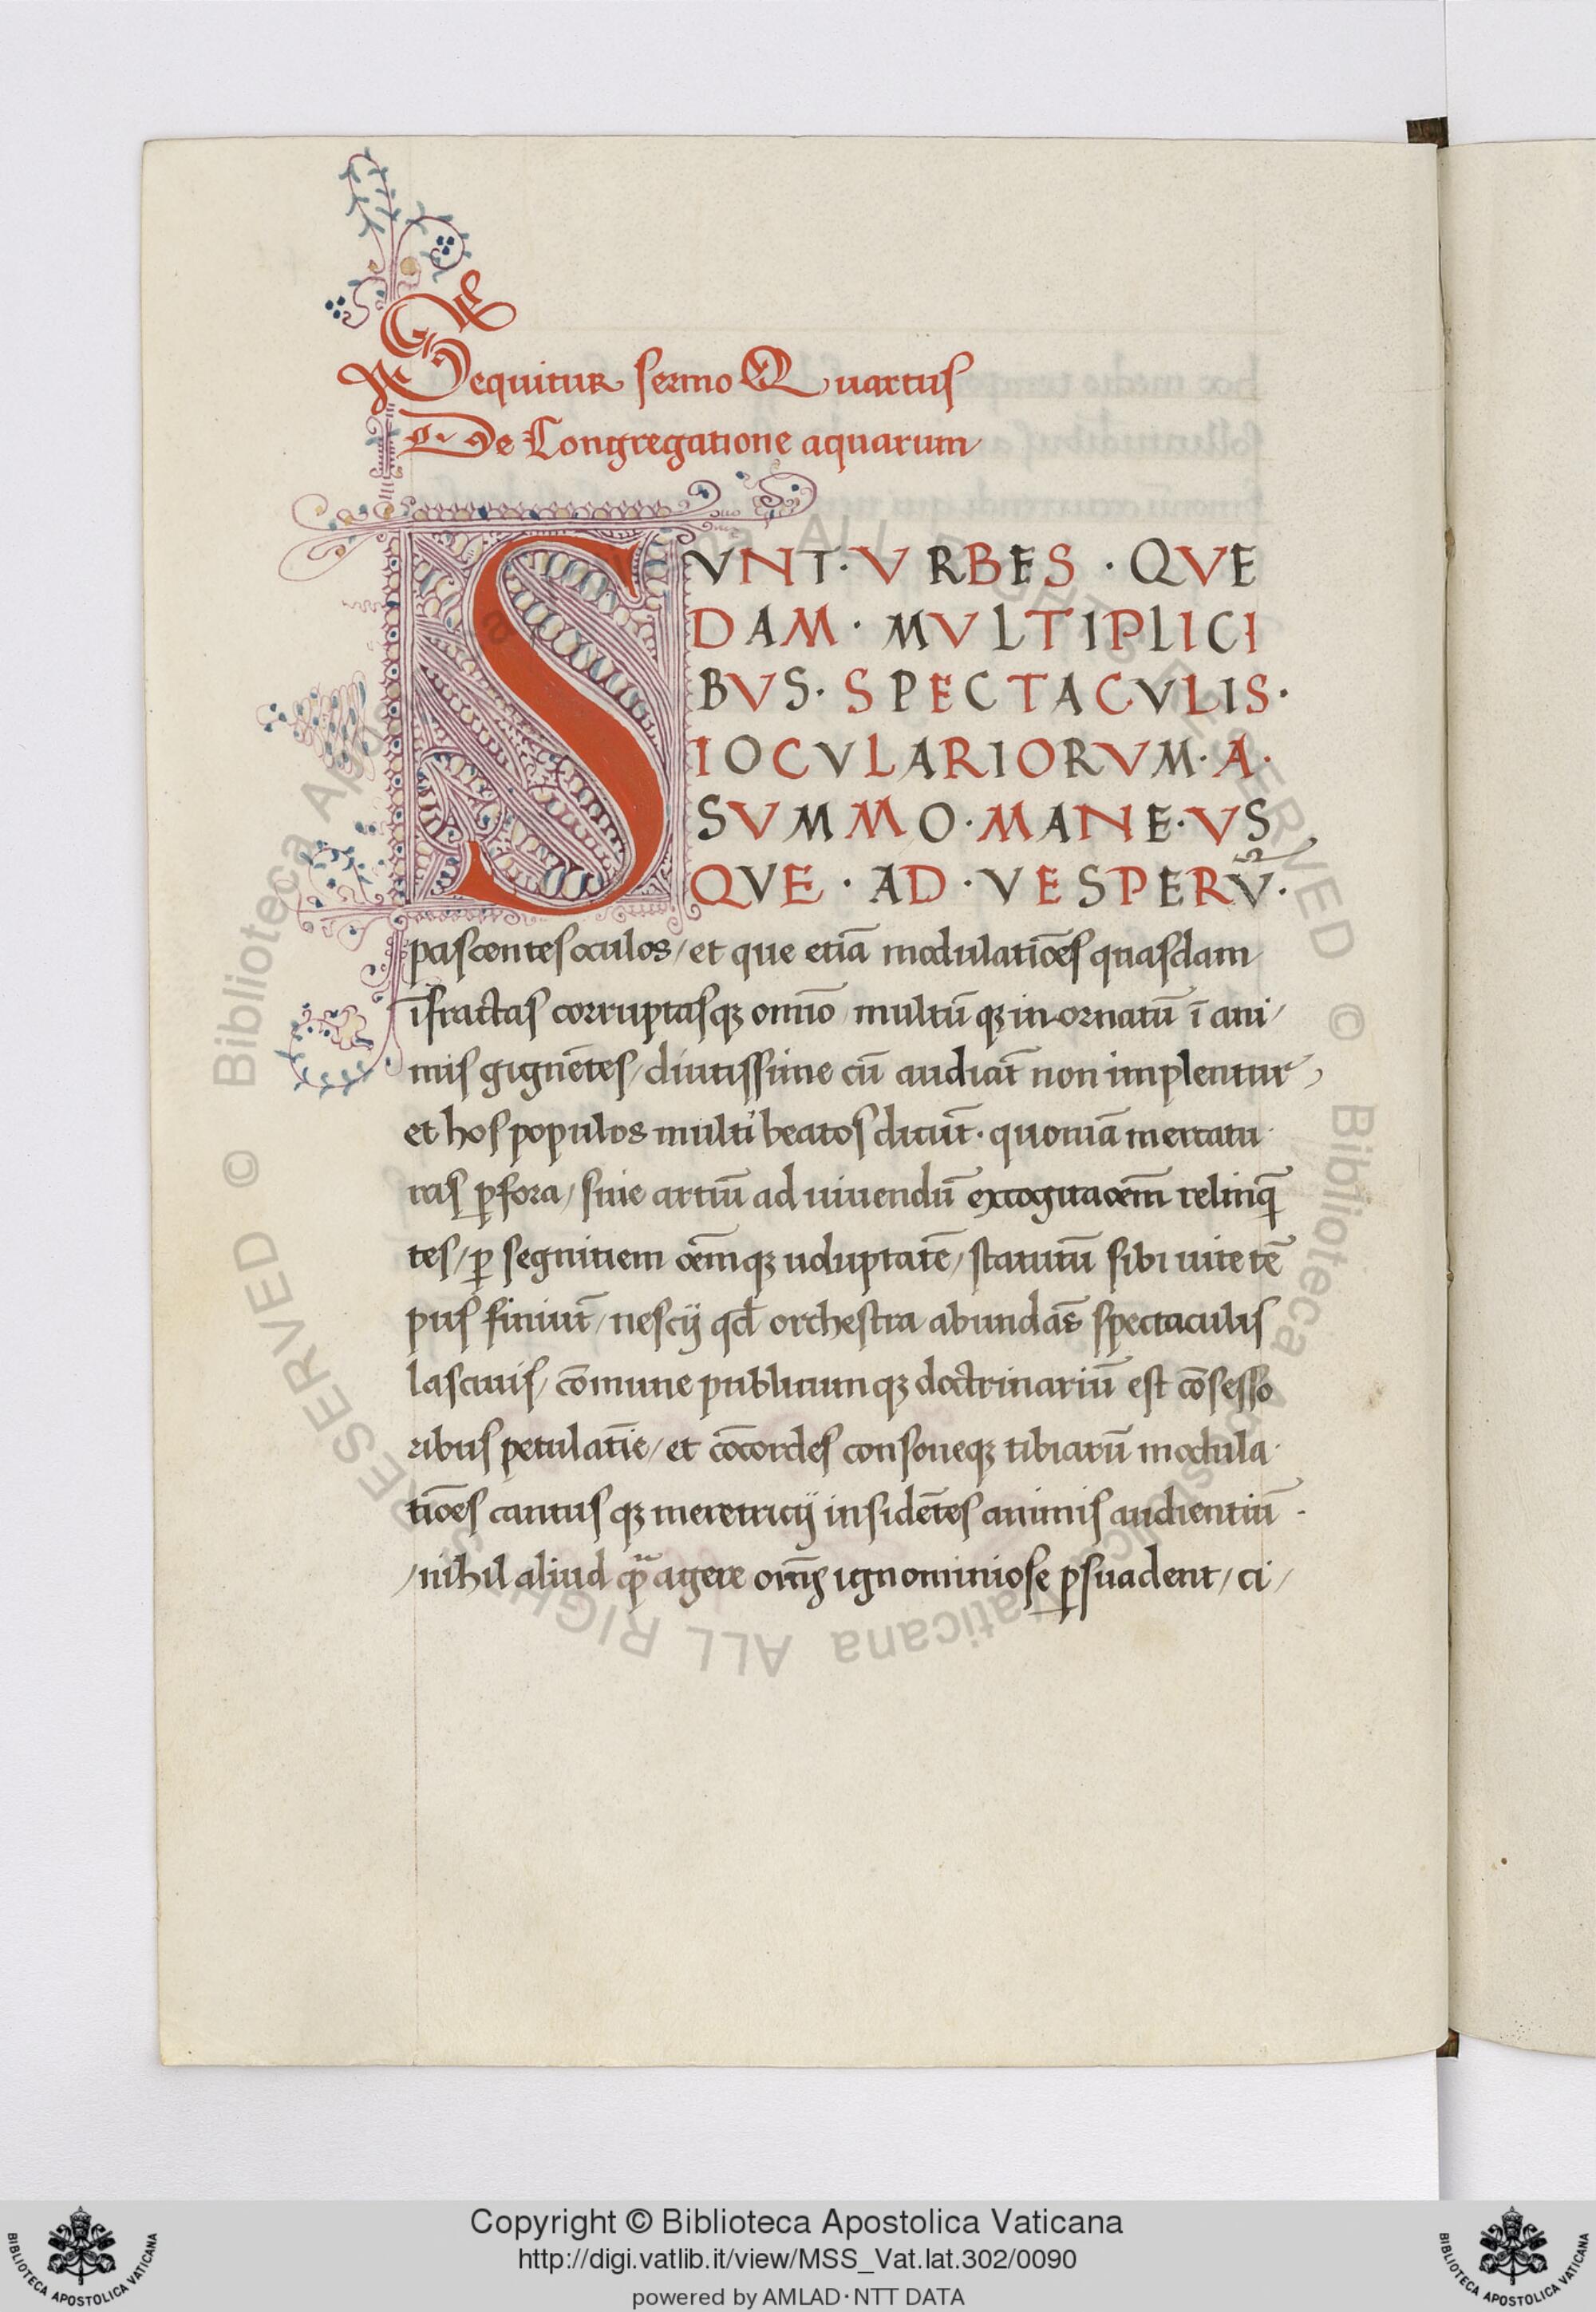 Sequitur sermo Quartus
De Congregatione aquarum
SVNT · VRBES · QVE
DAM · MVLTIPLICI
BVS · SPECTACVLIS ·
IOCVLARIORVM · A ·
SVMMO · MANE · VS
QVE · AD · VESPERṼ ·
pascentes oculos / et que etiã modulatiões quasdam
ĩfractas corruptasqꝫ omĩo multũ qꝫ in ornatũ ĩ ani /
mis gignẽtes / diutissime cũ audiãt non implentur
et hos populos multi beatos dicũt · quoniã mercatu
ras ꝑ fora / siue artiũ ad uiuendũ excogita oẽm relinq̃
tes / ꝑ segnitiem oẽmqꝫ uoluptatẽ / statutũ sibi uite tẽ
pus finiũt / nescij qđ orchestra abundãs spectaculis
lasciuis / cõmune publicumqꝫ doctrinariũ est cõsesso
ribus petulãtie / et cõcordes consoneqꝫ tibiarũ modula
tiões cantus qꝫ meretricij insidẽtes animis audientiũ ·
/ nihil aliud agere ignominiose ꝑsuadent / ci /
Copyright © Biblioteca Apostolica Vaticana
http://digi.vatlib.it/view/MSS_Vat.lat.302/0090
powered by AMLAD·NTT DATA
BIBLIOTECA APOSTOLICA VATICANA
BIBLIOTECA APOSTOLICA VATICANA
© Biblioteca Apostolica Vaticana ALL RIGHTS RESERVED
© Biblioteca Apostolica Vaticana ALL RIGHTS RESERVED